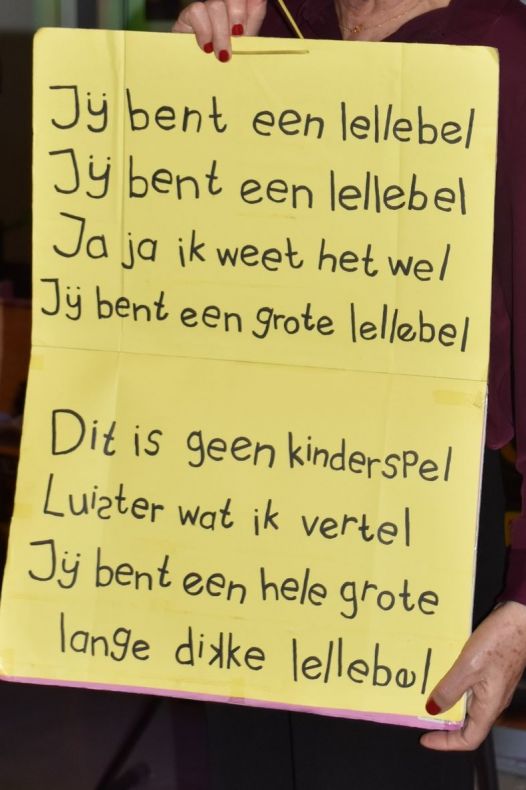 Jÿ bent een lellebel
Jÿ bent een lellebel
Ja ja ik weet het wel
Jÿ bent een grote lellebel
Dit is geen kinderspel
Luister wat ik vertel
Jÿ bent een hele grote
lange dikke lellebel